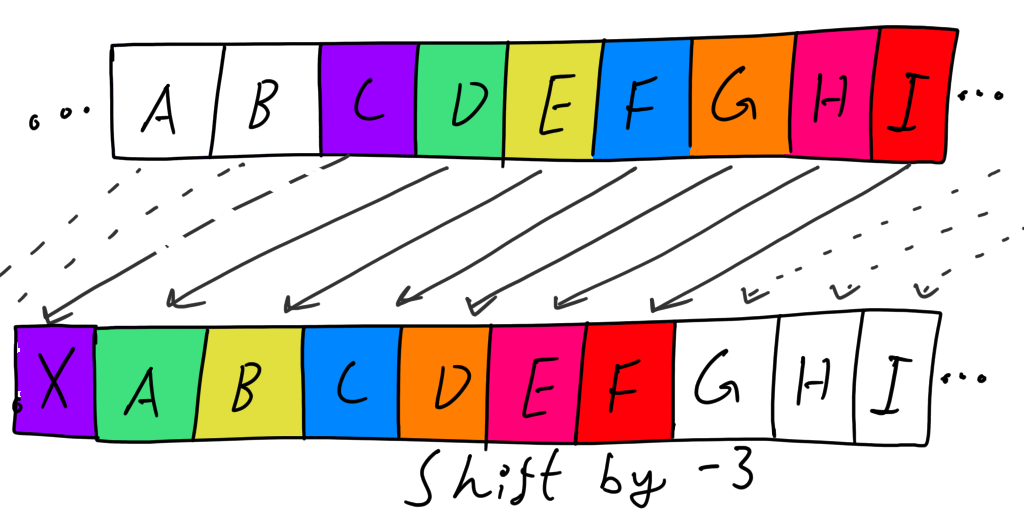 ... A B C D E F G H I ...
X A B C D E F G H I ...
Shift by -3